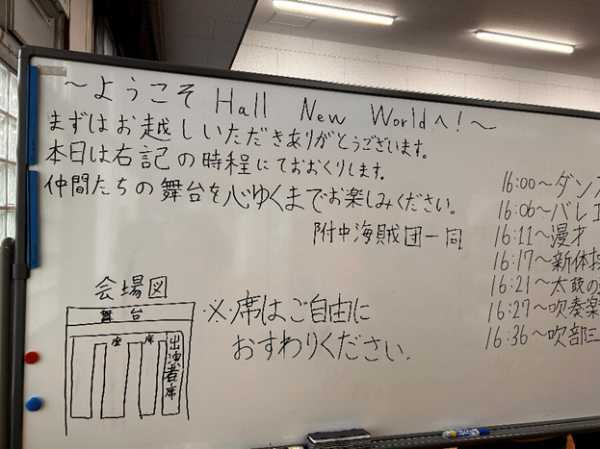 ～ようこそ Hall New Worldへ！～
まずはお越しいただきありがとうございます。
本日は右記の時程にておおくりします。
仲間たちの舞台を心ゆくまでお楽しみください。
附中海賊団一同
16:00～ダンス
16:06～バレエ
16:11～漫才
16:17～新体操
16:21～太鼓の
16:27～吹奏楽
16:36～吹部三
会場図
舞台
座席
出演者席
※席はご自由に
おすわりください.